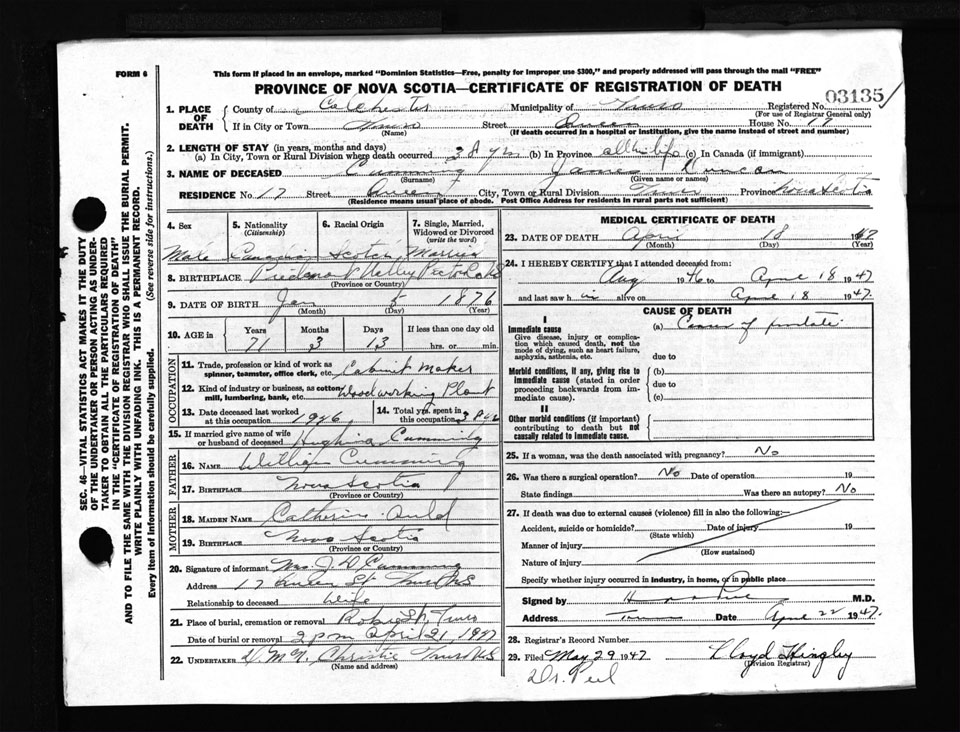 FORM 6
This form if placed in an envelope, marked "Dominion Statistics—Free, penalty for improper use $300," and properly addressed will pass through the mail "FREE"
PROVINCE OF NOVA SCOTIA—CERTIFICATE OF REGISTRATION OF DEATH
03135
1. PLACE OF DEATH County of Colchester Municipality of Truro Registered No.
(For use of Registrar General only)
If in City or Town Truro Street Queen House No. 17
(Name) (If death occurred in a hospital or institution, give the name instead of street and number)
2. LENGTH OF STAY (in years, months and days)
(a) In City, Town or Rural Division where death occurred 38 yrs (b) In Province all his life (c) In Canada (if immigrant)
3. NAME OF DECEASED Cumming James Duncan
(Surname) (Given name or names)
RESIDENCE No. 17 Street Queen City, Town or Rural Division Truro Province Nova Scotia
(Residence means usual place of abode. Post Office Address for residents in rural parts not sufficient)
4. Sex 5. Nationality (Citizenship) 6. Racial Origin 7. Single, Married, Widowed or Divorced (write the word)
Male Canadian Scotch Married
8. BIRTHPLACE Pictou Co NS
(Province or Country)
9. DATE OF BIRTH Jan 5 1876
(Month) (Day) (Year)
10. AGE in Years Months Days If less than one day old
71 3 13 hrs. or min.
OCCUPATION
11. Trade, profession or kind of work as spinner, teamster, office clerk, etc. Cabinet Maker
12. Kind of industry or business, as cotton mill, lumbering, bank, etc. Woodworking Plant
13. Date deceased last worked at this occupation 1946 14. Total yrs. spent in this occupation 38
15. If married give name of wife or husband of deceased Hughina Cumming
FATHER
16. NAME William Cumming
17. BIRTHPLACE Nova Scotia
(Province or Country)
MOTHER
18. MAIDEN NAME Catherine Auld
19. BIRTHPLACE Nova Scotia
(Province or Country)
20. Signature of informant Mrs. J D Cumming
Address 17 Queen St Truro NS
Relationship to deceased Wife
21. Place of burial, cremation or removal Robie St, Truro
Date of burial or removal 2 pm April 21, 1947
22. UNDERTAKER Christie Truro NS
(Name and address)
MEDICAL CERTIFICATE OF DEATH
23. DATE OF DEATH April 18 1947
(Month) (Day) (Year)
24. I HEREBY CERTIFY that I attended deceased from:
Aug 1946 to April 18 1947
and last saw him alive on April 18 1947.
CAUSE OF DEATH
I
Immediate cause (a) Cancer of prostate
Give disease, injury or complication which caused death, not the mode of dying, such as heart failure, asphyxia, asthenia, etc.
due to
Morbid conditions, if any, giving rise to immediate cause (stated in order proceeding backwards from immediate cause). (b)
due to
(c)
II
Other morbid conditions (if important) contributing to death but not causally related to immediate cause.
25. If a woman, was the death associated with pregnancy? No
26. Was there a surgical operation? No Date of operation 19
State findings Was there an autopsy? No
27. If death was due to external causes (violence) fill in also the following:—
Accident, suicide or homicide? Date of injury 19
(State which)
Manner of injury
(How sustained)
Nature of injury
Specify whether injury occurred in industry, in home, or in public place
Signed by M.D.
Address Truro Date April 22 1947.
28. Registrar's Record Number
29. Filed May 29 1947 Lloyd Hingley
(Division Registrar)
Dr. Peel
SEC. 46—VITAL STATISTICS ACT MAKES IT THE DUTY
OF THE UNDERTAKER OR PERSON ACTING AS UNDERTAKER TO OBTAIN ALL THE PARTICULARS REQUIRED
IN THE "CERTIFICATE OF REGISTRATION OF DEATH"
AND TO FILE THE SAME WITH THE DIVISION REGISTRAR WHO SHALL ISSUE THE BURIAL PERMIT.
WRITE PLAINLY WITH UNFADING INK. THIS IS A PERMANENT RECORD.
Every item of Information should be carefully supplied. (See reverse side for instructions.)